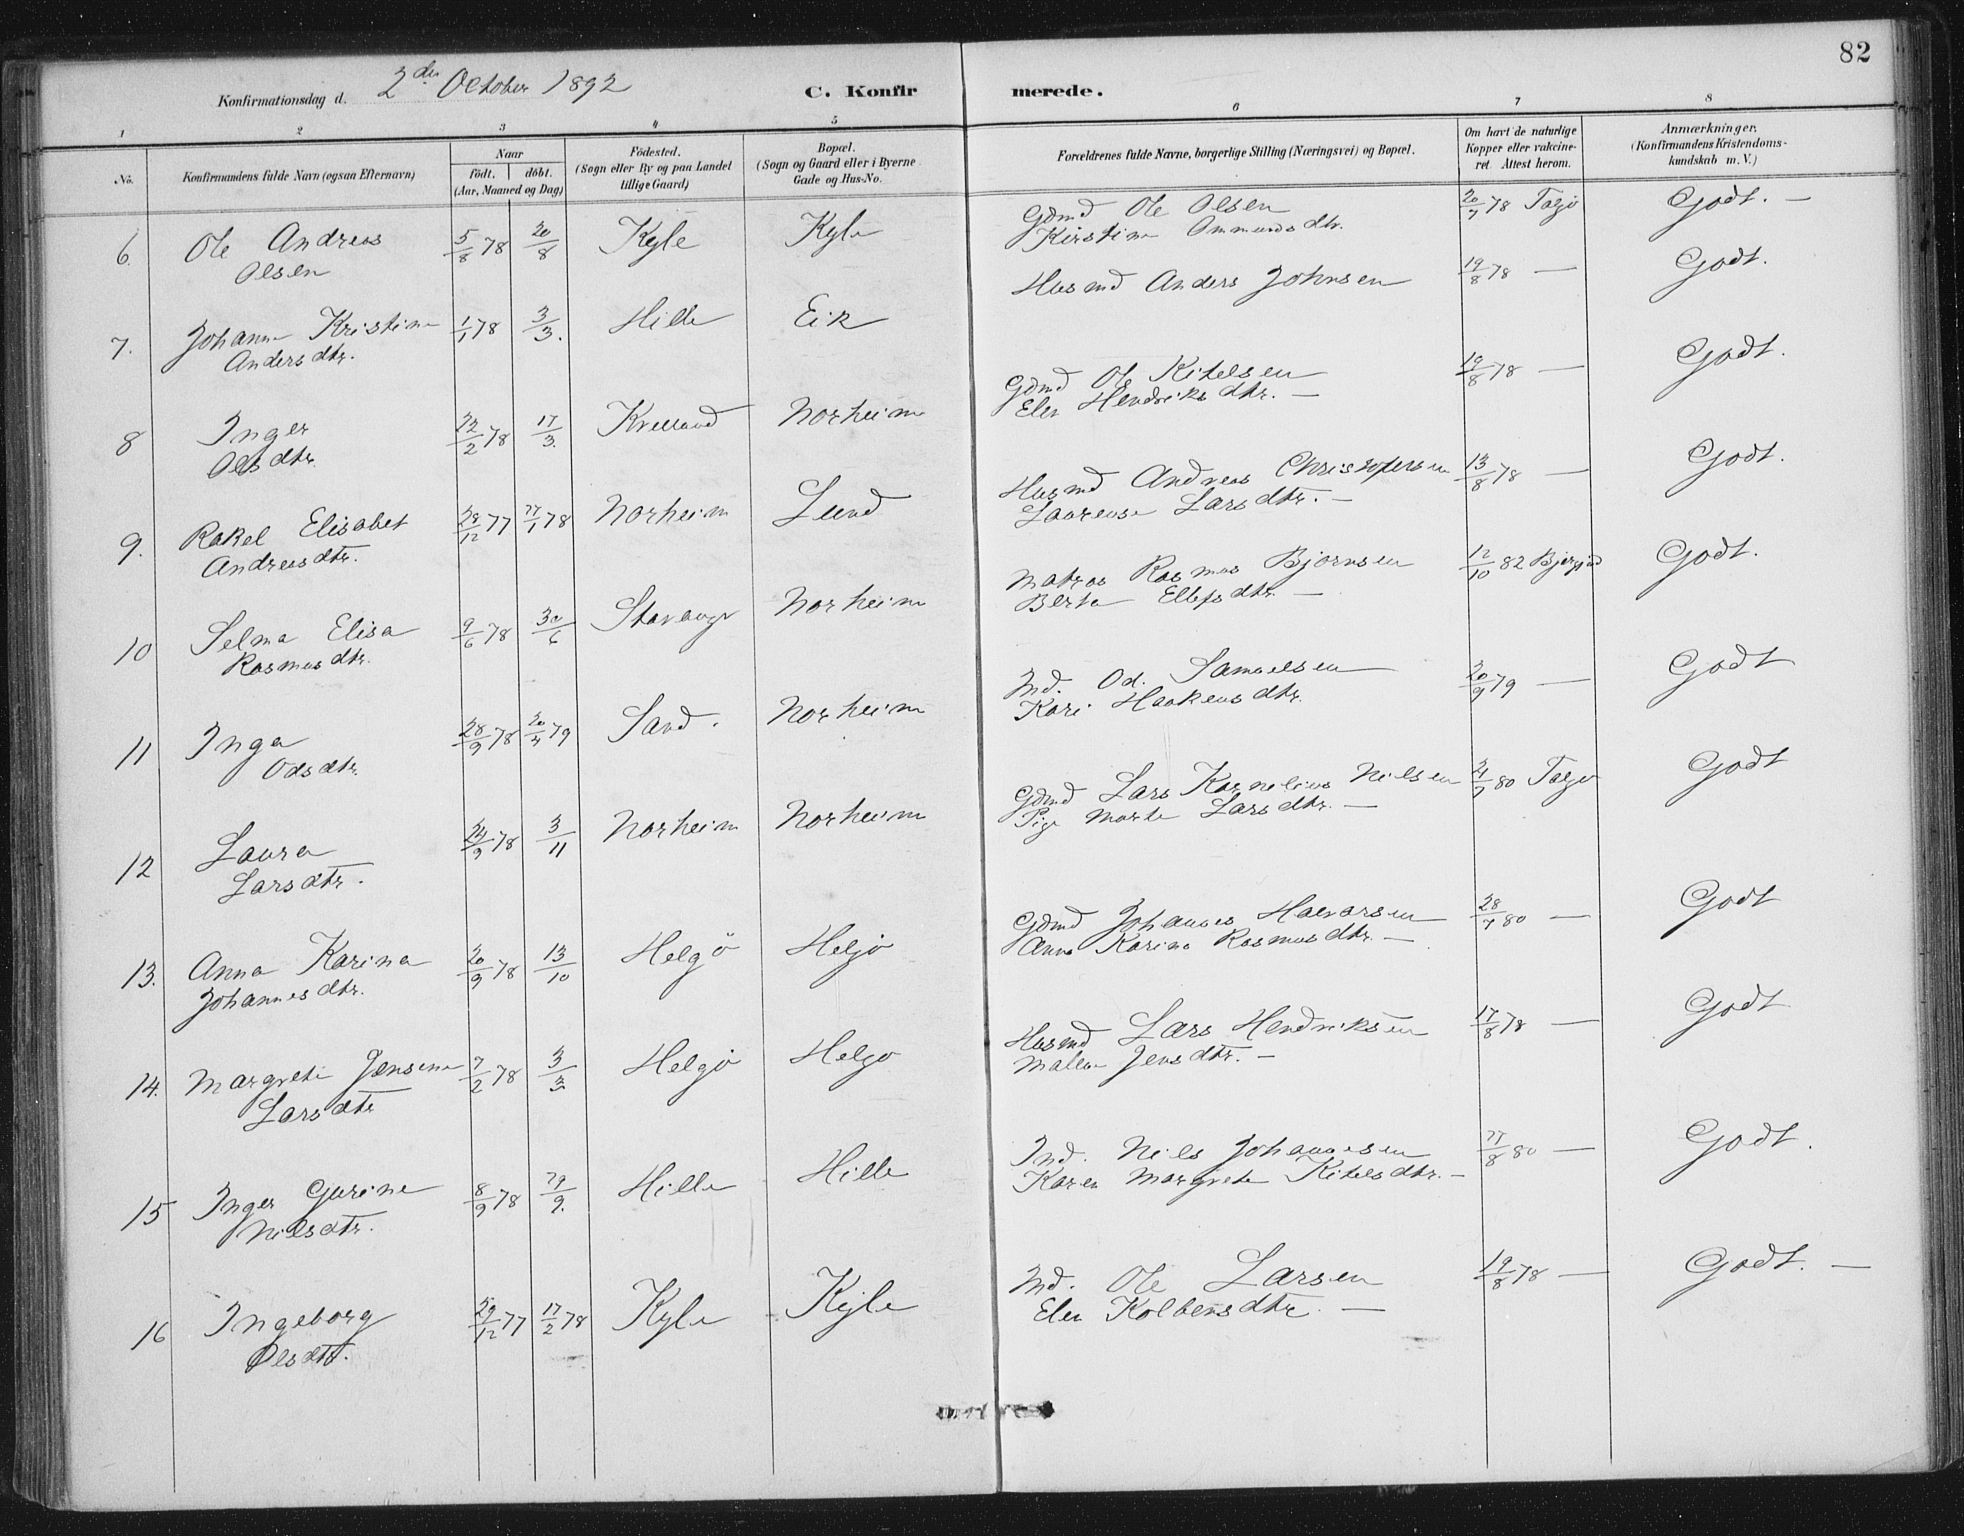 82
Konfirmationsdag d. 2den October 1892
C. Konfirmerede.
1 2 3 4 5 6 7 8
No.
Konfirmandens fulde Navn (ogsaa Efternavn)
Naar
födt. döbt.
(Aar, Maaned og Dag)
Födested.
(Sogn eller By og paa Landet
tillige Gaard)
Bopæl.
(Sogn og Gaard eller i Byerne
Gade og Hus-No.
Forældrenes fulde Navne, borgerlige Stilling (Næringsvei) og Bopæl.
Om havt de naturlige
Kopper eller vakcine-
ret. Attest herom.
Anmærkninger.
(Konfirmandens Kristendoms-
kundskab m. V.)
6. Ole Andreas 5/8 78 20/8 Kyle Kyle Gdmd Ole Olsen 20/7 78 Godt. —
Olsen Kirstine Ommundsdtr.
7. Johanne Kristine 1/1 78 3/3. Hille Eik Husmd Anders Johnsen 19/8 78 — Godt.
Andersdtr.
8 Inger 22/2 78 17/3. Norheim Gdmd Ole Kitelsen 19/8 78 — Godt.
Olsdtr. Elen Hendriksdtr. —
9. Rakel Elisabet 28/12 77 78 Norheim Lund Husmd Andreas Christofersen 13/8 78 — Godt.
Andreasdtr. Laurense Larsdtr. —
10 Selma Elisa 9/6 78 30/6 Stavanger Norheim Matros Rasmus Bjørnsen 12/10 82 Godt.
Rasmusdtr. Berta —
11 Inga 28/9 78 79 Sand. Norheim Ind. Od. Samuelsen 20/9 79 — Godt
Odsdtr. Kari Haakensdtr.
12 Laura 24/9 78 3/11 Norheim Norheim Gdmd Lars Kornelius Nielsen 80 Godt
Larsdtr. Pige Marta Larsdtr. —
13. Anna Karina 20/9 78 13/10 Helgö Helgö Gdmd Johannes Halvorsen 28/7 80 — Godt
Johannesdtr. Anna Karina Rasmusdtr. —
14. Margrete Jensine 7/2 78 3/3 Helgö Helgö Husmd Lars Hendriksen 17/8 78 — Godt
Larsdtr Malene Jensdtr. —
15 Inger Gurine 8/9 78 29/9. Hille Hille Ind. Niels Johannesen 80 — Godt.
Nilsdtr. Karen Margrete Kitelsdtr. —
16 Ingeborg 29/12 77 17/2 78 Kyle Kyle Ind. Ole Larsen 19/8 78 — Godt. —
Olsdtr. Elen Kolbensdtr. —